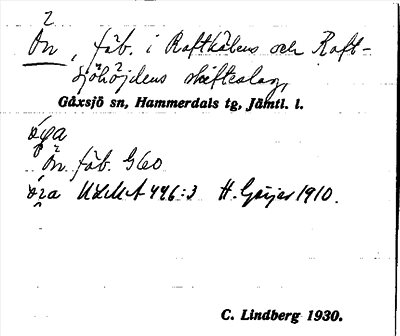 2
Ön, fäb. i Raftkälens och Raft-
sjöhöjdens skifteslag,
Gåxsjö sn, Hammerdals tg, Jämtl. l.
Ön fäb. G60
ULMA 446:3 H. Geijer 1910.
C. Lindberg 1930.